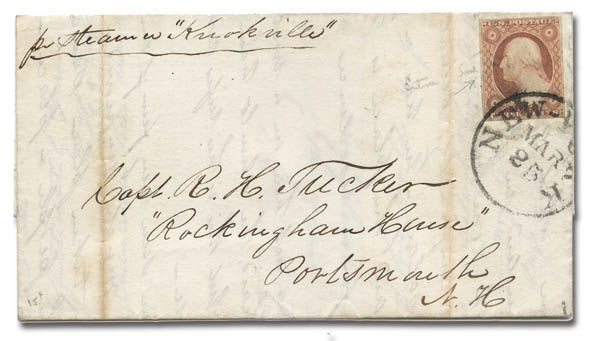 pr steamer "Knoxville"
U.S. POSTAGE
NEW-YO
K
MAR
25
Capt. R. H. Tucker
"Rockingham House"
Portsmouth
N. H